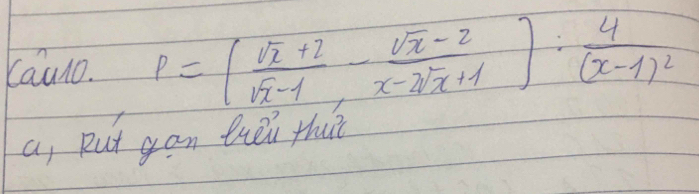 Câu10. P = [ (√x + 2)/(√x - 1) - (√x - 2)/(x - 2√x + 1) ] : 4/(x - 1)²
a, Rút gọn biểu thức